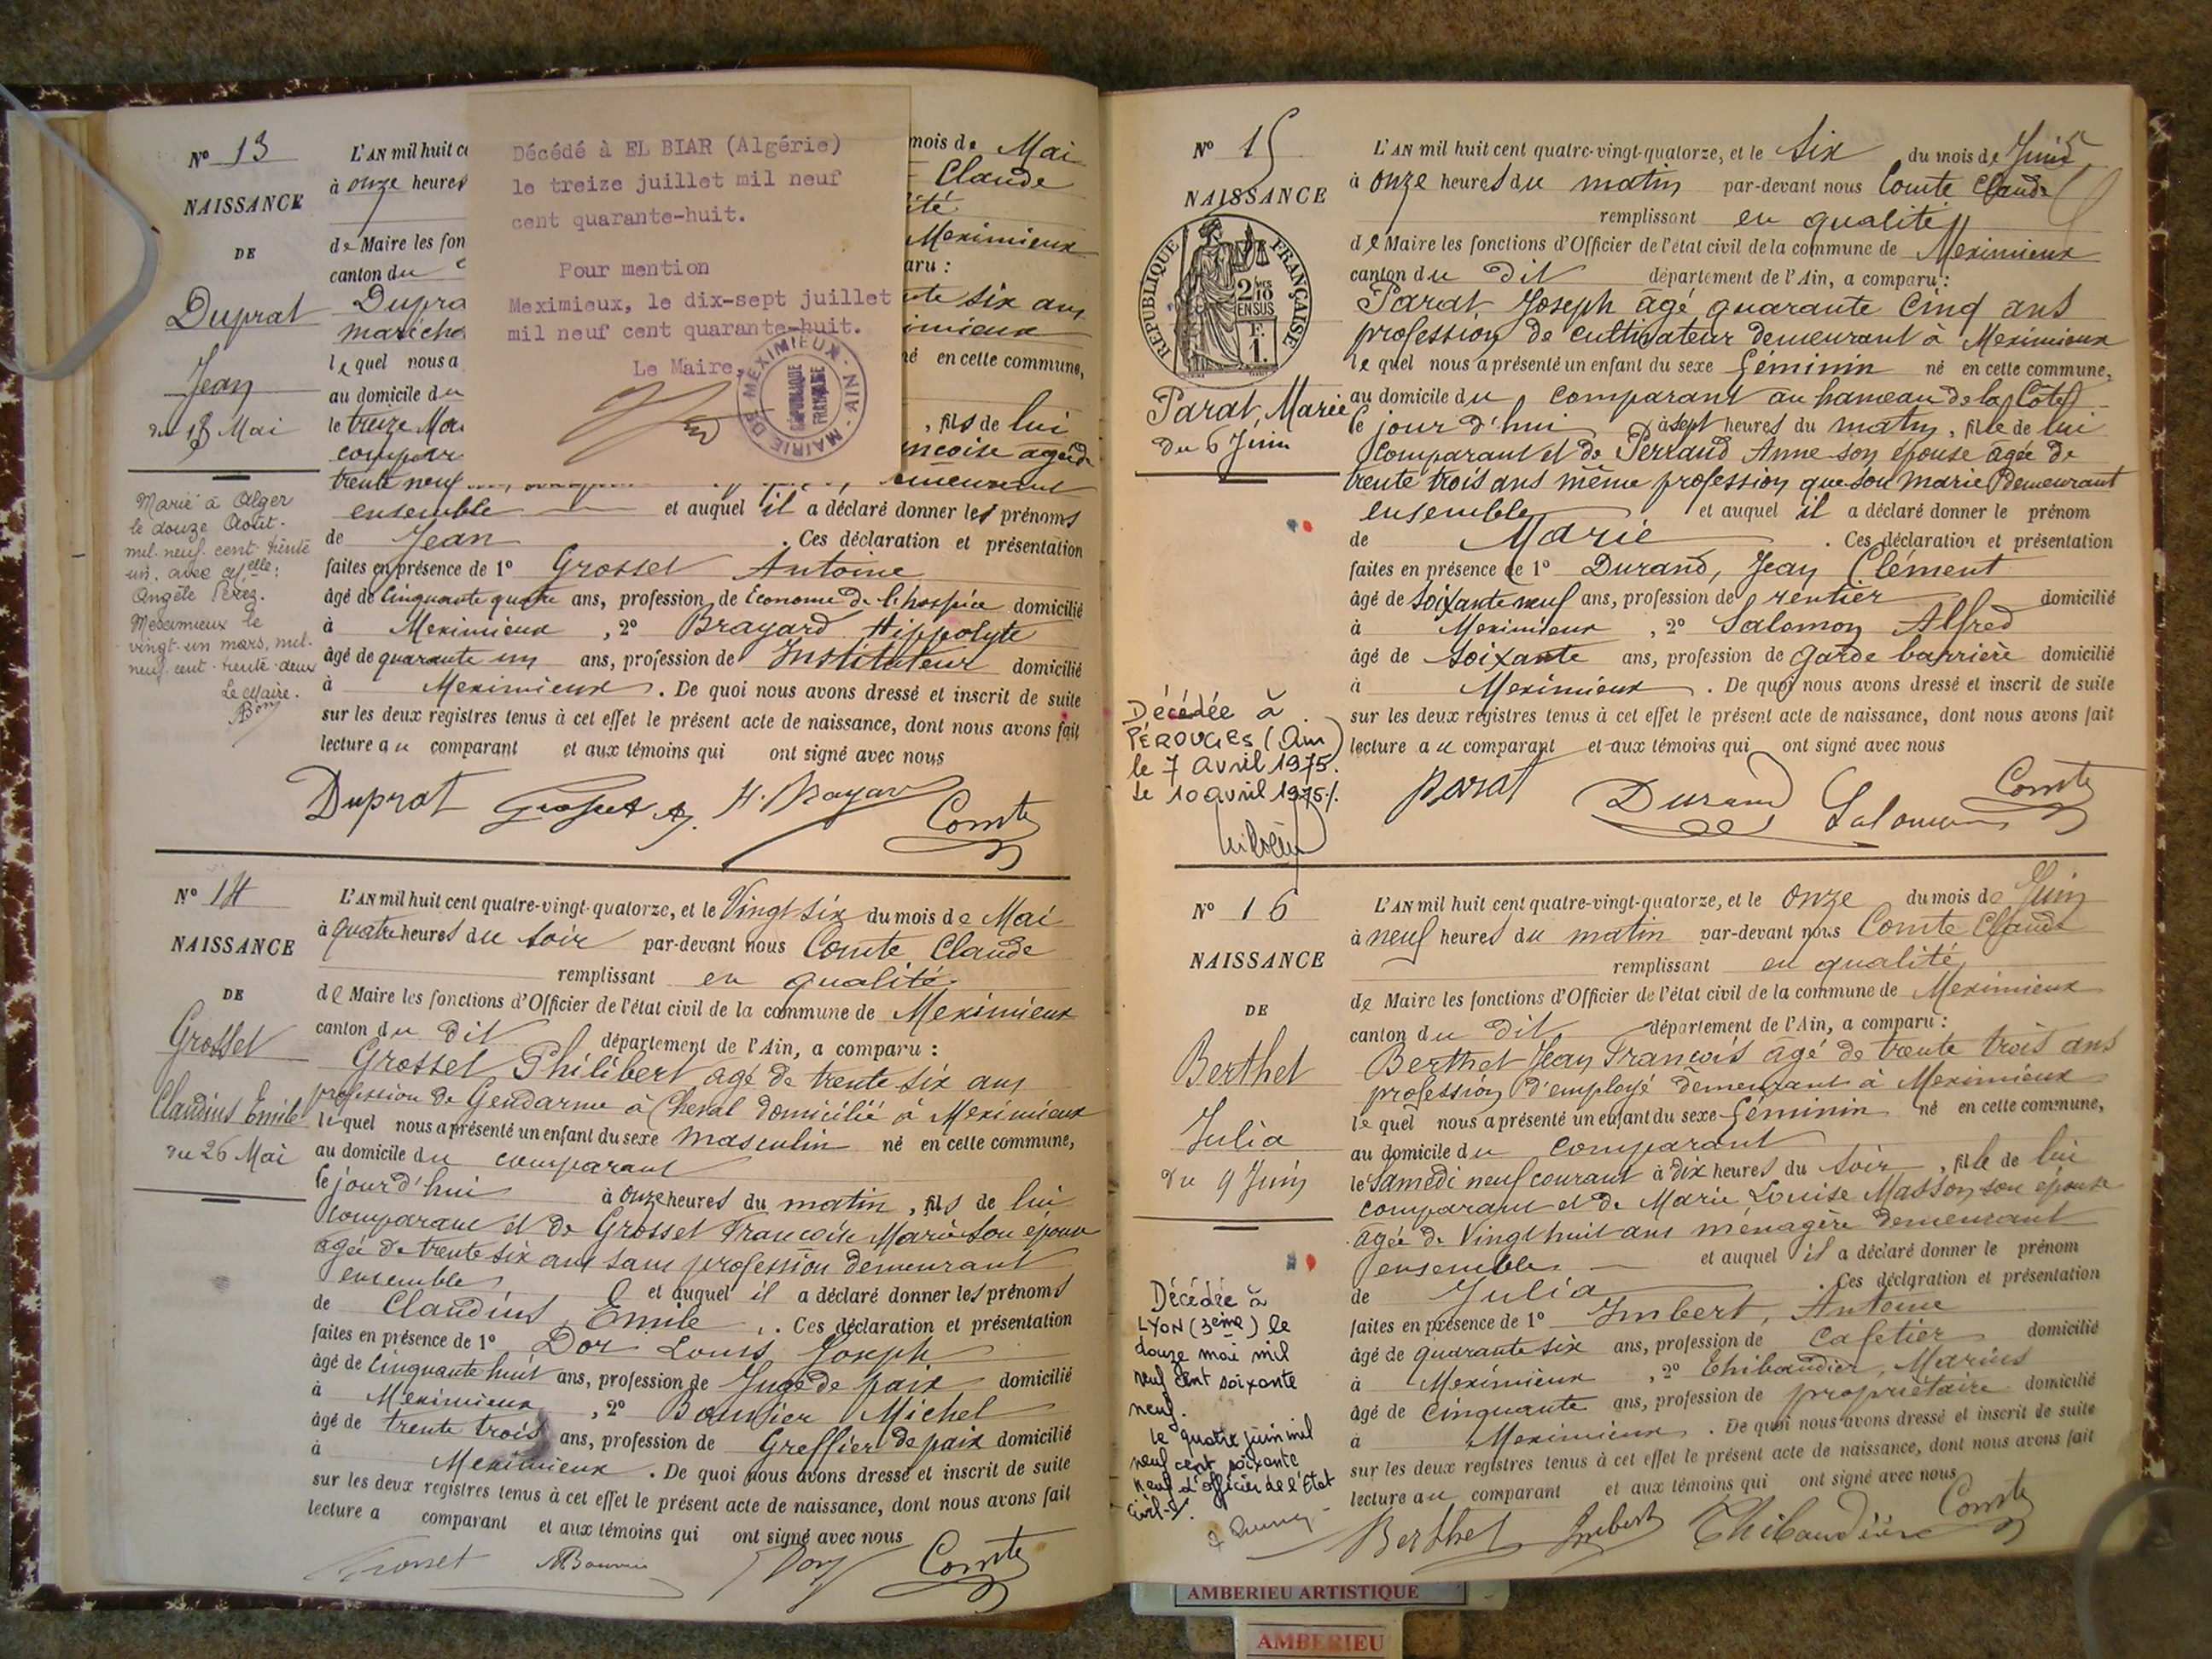 Nº 13
NAISSANCE
DE
Duprat
Jean
du 13 Mai
Marié à Alger
le douze Août
mil neuf cent trente
un, avec Melle:
Angèle Pérez.
Meximieux le
vingt un mars, mil
neuf cent trente deux
Le Maire.
L'AN mil huit c
à onze heures
de Maire les fon
canton du
Dupra
marécha
lequel nous a
au domicile du
le treize Mai
compar
trente neuf
Décédé à EL BIAR (Algérie)
le treize juillet mil neuf
cent quarante-huit.
Pour mention
Meximieux, le dix-sept juillet
mil neuf cent quarante-huit.
Le Maire,
MAIRIE DE MEXIMIEUX - AIN
RÉPUBLIQUE FRANÇAISE
mois de Mai
Claude
ité
Meximieux
aru :
nte six ans
imieux
né en cette commune,
, fils de lui
ncoise agée de
demeurant
ensemble et auquel il a déclaré donner les prénoms
de Jean . Ces déclaration et présentation
faites en présence de 1º Grosset Antoine
âgé de cinquante quatre ans, profession de Econome de l'hospice domicilié
à Meximieux , 2º Brayard Hippolyte
âgé de quarante un ans, profession de Instituteur domicilié
à Meximieux . De quoi nous avons dressé et inscrit de suite
sur les deux registres tenus à cet effet le présent acte de naissance, dont nous avons fait
lecture au comparant et aux témoins qui ont signé avec nous
Duprat Grosset A. H. Brayard Comte
Nº 14
NAISSANCE
DE
Grosset
Claudius Emile
du 26 Mai
L'AN mil huit cent quatre-vingt-quatorze, et le Vingt six du mois de Mai
à quatre heures du soir par-devant nous Comte Claude
remplissant en qualité
de Maire les fonctions d'Officier de l'état civil de la commune de Meximieux
canton du dit département de l'Ain, a comparu :
Grosset Philibert agé de trente six ans
profession de Gendarme à Cheval domicilié à Meximieux
lequel nous a présenté un enfant du sexe masculin né en cette commune,
au domicile du comparant
le jour d'hui à onze heures du matin, fils de lui
comparant et de Grosset Francoise Marie son épouse
agée de trente six ans sans profession demeurant
ensemble et auquel il a déclaré donner les prénoms
de Claudius, Emile . Ces déclaration et présentation
faites en présence de 1º Dor Louis Joseph
âgé de cinquante huit ans, profession de Juge de paix domicilié
à Meximieux , 2º Bouvier Michel
âgé de trente trois ans, profession de Greffier de paix domicilié
à Meximieux . De quoi nous avons dressé et inscrit de suite
sur les deux registres tenus à cet effet le présent acte de naissance, dont nous avons fait
lecture a comparant et aux témoins qui ont signé avec nous
Grosset Dor Comte
Nº 15
NAISSANCE
RÉPUBLIQUE FRANÇAISE
2/10 MES EN SUS
F. 1.
Parat, Marie
du 6 Juin
Décédée à
PÉROUGES (Ain)
le 7 avril 1975.
Le 10 avril 1975 ./.
L'AN mil huit cent quatre-vingt-quatorze, et le Six du mois de Juin
à onze heures du matin par-devant nous Comte Claude
remplissant en qualité
de Maire les fonctions d'Officier de l'état civil de la commune de Meximieux
canton du dit département de l'Ain, a comparu :
Parat Joseph âgé quarante cinq ans
profession de cultivateur demeurant à Meximieux
lequel nous a présenté un enfant du sexe féminin né en cette commune,
au domicile du comparant au hameau de la Côte
le jour d'hui à sept heures du matin, fille de lui
comparant et de Perraud Anne son épouse âgée de
trente trois ans même profession que son marie demeurant
ensemble et auquel il a déclaré donner le prénom
de Marie . Ces déclaration et présentation
faites en présence de 1º Durand, Jean Clément
âgé de soixante neuf ans, profession de rentier domicilié
à Meximieux , 2º Salomon Alfred
âgé de soixante ans, profession de garde barrière domicilié
à Meximieux . De quoi nous avons dressé et inscrit de suite
sur les deux registres tenus à cet effet le présent acte de naissance, dont nous avons fait
lecture au comparant et aux témoins qui ont signé avec nous
Parat Durand Salomon Comte
Nº 16
NAISSANCE
DE
Berthet
Julia
du 9 Juin
Décédée à
LYON (3eme) le
douze mai mil
neuf cent soixante
neuf.
le quatre juin mil
neuf cent soixante
neuf L'officier de l'Etat
Civil ./.
L'AN mil huit cent quatre-vingt-quatorze, et le onze du mois de Juin
à neuf heures du matin par-devant nous Comte Claude
remplissant en qualité
de Maire les fonctions d'Officier de l'état civil de la commune de Meximieux
canton du dit département de l'Ain, a comparu :
Berthet Jean François âgé de trente trois ans
profession d'employé demeurant à Meximieux
lequel nous a présenté un enfant du sexe féminin né en cette commune,
au domicile du comparant
le samedi neuf courant à dix heures du soir, fille de lui
comparant et de Marie Louise Masson son épouse
agée de vingt huit ans ménagère demeurant
ensemble et auquel il a déclaré donner le prénom
de Julia . Ces déclaration et présentation
faites en présence de 1º Imbert, Antoine
âgé de quarante six ans, profession de cafetier domicilié
à Meximieux , 2º Thibaudier, Marius
âgé de cinquante ans, profession de propriétaire domicilié
à Meximieux . De quoi nous avons dressé et inscrit de suite
sur les deux registres tenus à cet effet le présent acte de naissance, dont nous avons fait
lecture au comparant et aux témoins qui ont signé avec nous
Berthet Imbert Thibaudier Comte
AMBERIEU ARTISTIQUE
AMBERIEU